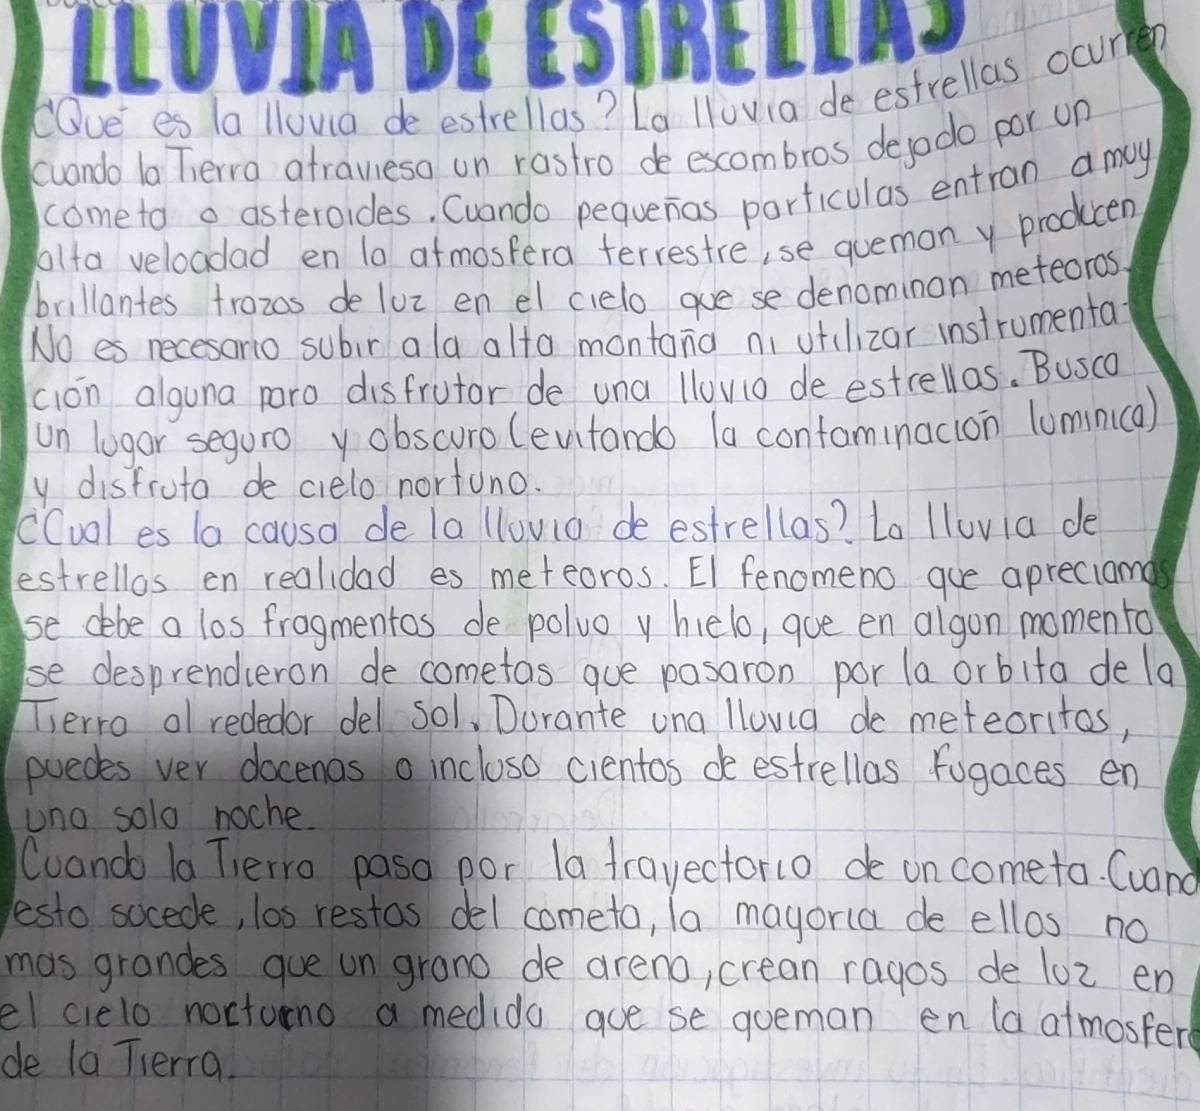 LLUVIA DE ESTRELLAS
¿Qué es la lluvia de estrellas? La lluvia de estrellas ocurren
cuando la Tierra atraviesa un rastro de escombros dejado por un
cometa o asteroides. Cuando pequeñas particulas entran a muy
alta velocidad en la atmosfera terrestre, se queman y producen
brillantes trazos de luz en el cielo que se denominan meteoros.
No es necesario subir a la alta montaña ni utilizar instrumenta-
ción alguna para disfrutar de una lluvia de estrellas. Busca
un lugar seguro y obscuro (evitando la contaminación luminica)
y disfruta de cielo norturno.
¿Cual es la causa de la lluvia de estrellas? La lluvia de
estrellas en realidad es meteoros. El fenomeno que apreciamos
se debe a los fragmentos de polvo y hielo, que en algun momento
se desprendieron de cometas que pasaron por la orbita de la
Tierra al rededor del sol. Durante una lluvia de meteoritos,
puedes ver docenas o incluso cientos de estrellas fugaces en
una sola noche.
Cuando la Tierra pasa por la trayectoria de un cometa. Cuand
esto sucede, los restos del cometa, la mayoria de ellos no
mas grandes que un grano de arena, crean rayos de luz en
el cielo nocturno a medida que se queman en la atmosfera
de la Tierra.